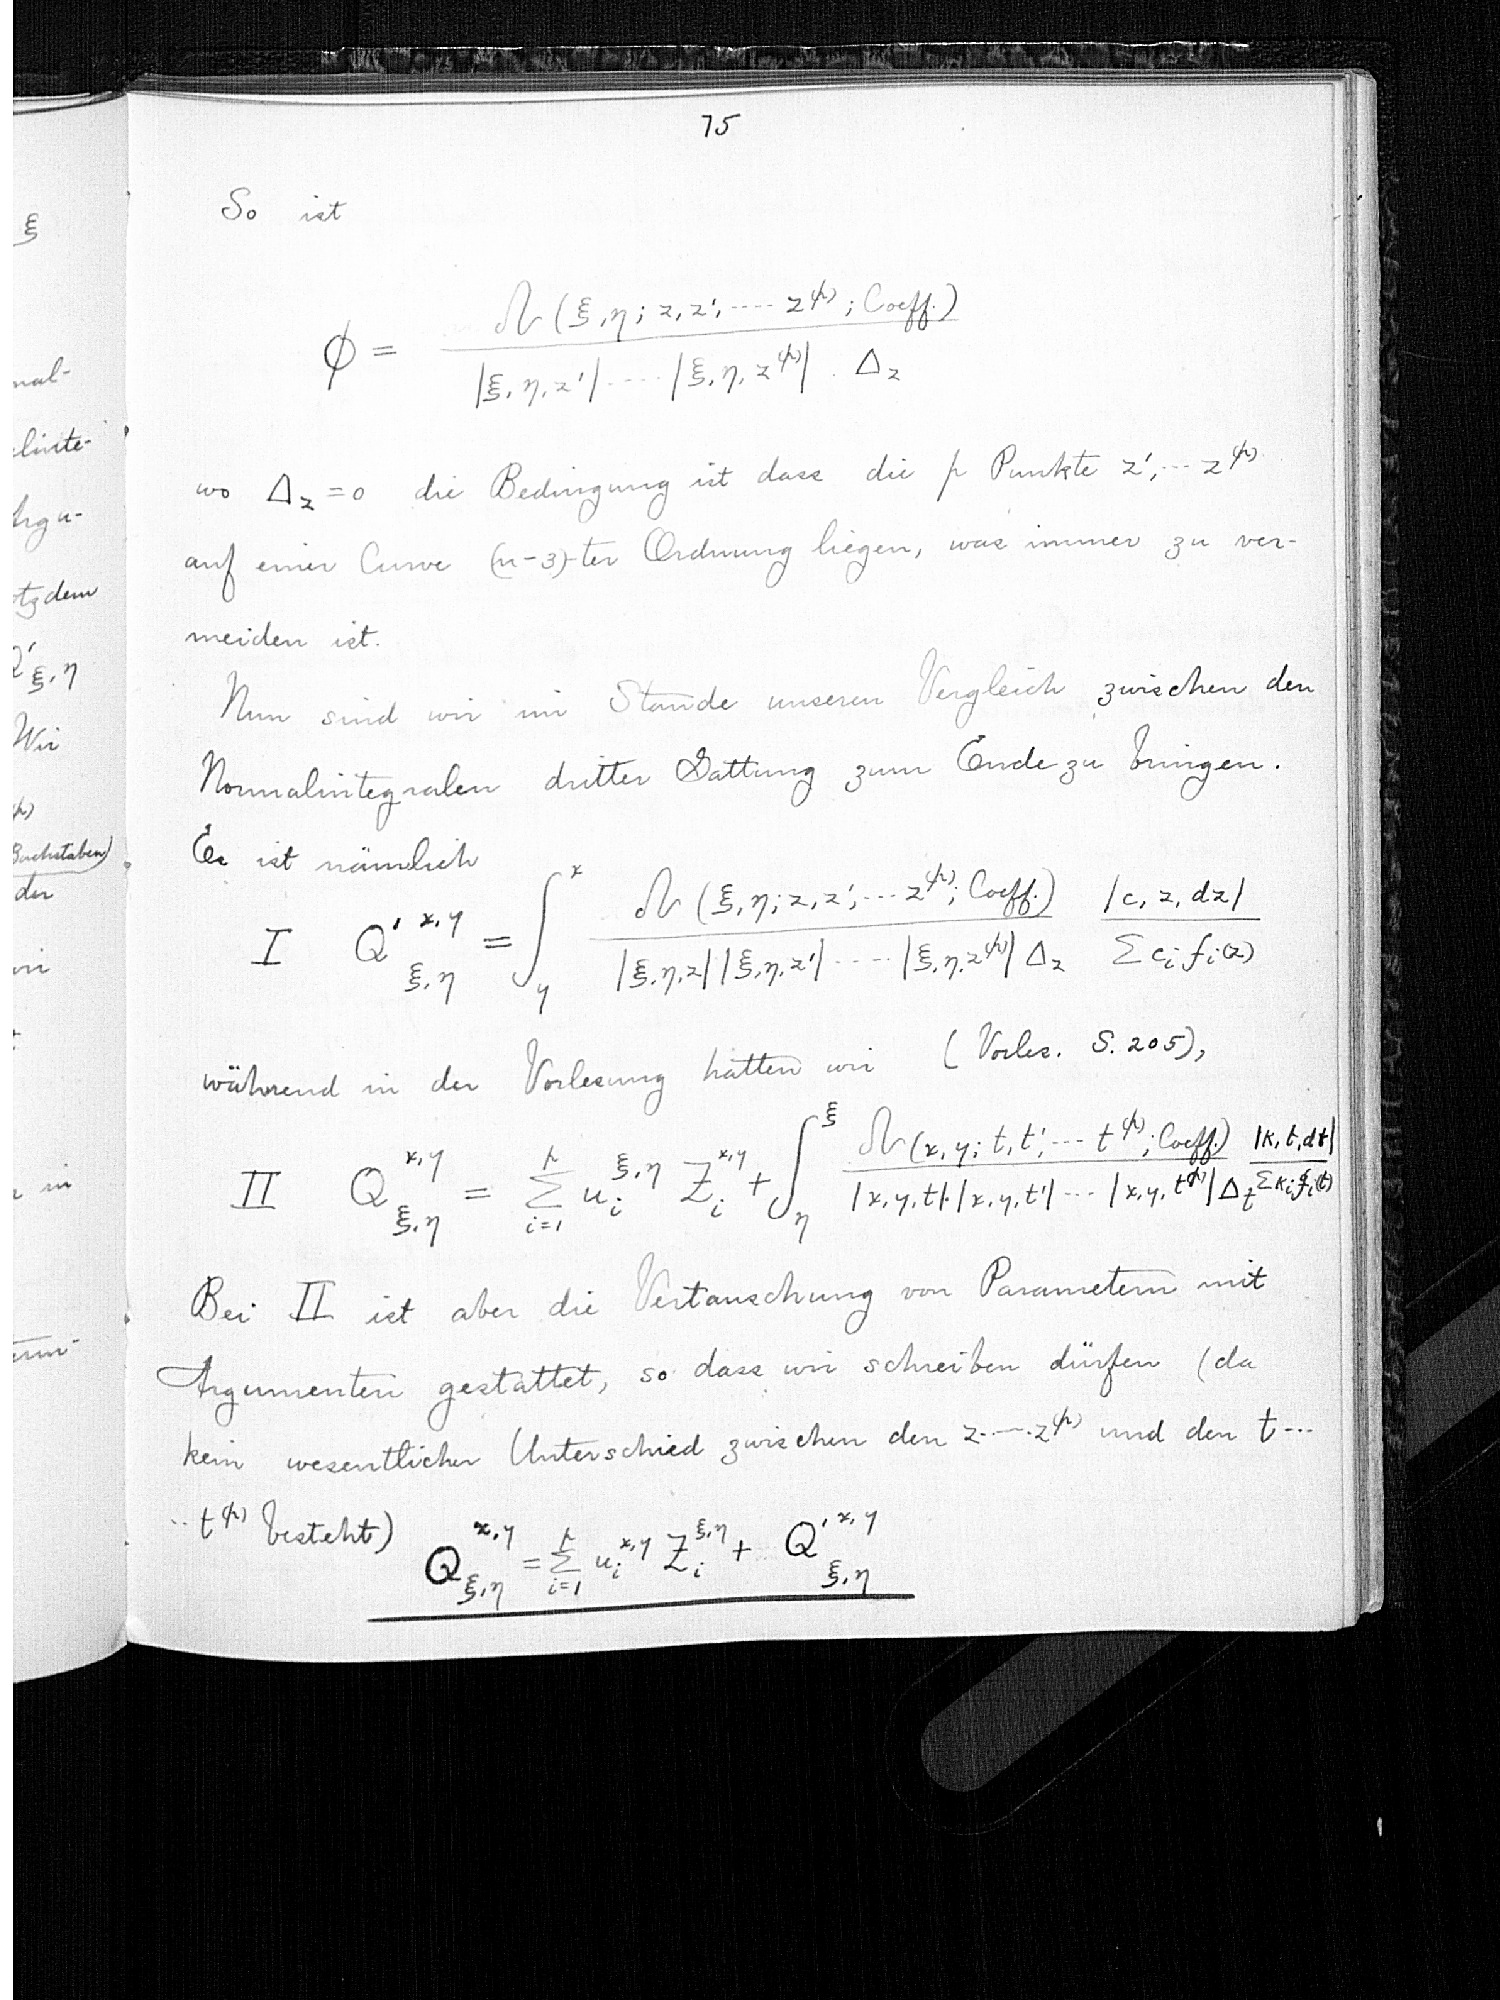 75
So ist
ϕ = Ω (ξ, η; z, z', ---- z⁽ᵖ⁾; Coeff.) / |ξ, η, z'| ---- |ξ, η, z⁽ᵖ⁾| . Δ_z
wo Δ_z = 0 die Bedingung ist dass die p Punkte z', --- z⁽ᵖ⁾
auf einer Curve (n-3)-ter Ordnung liegen, was immer zu ver-
meiden ist.
Nun sind wir im Stande unseren Vergleich zwischen den
Normalintegralen dritter Gattung zum Ende zu bringen.
Es ist nämlich
I Q'^{x,y}_{ξ,η} = ∫_y^x Ω (ξ, η; z, z', --- z⁽ᵖ⁾; Coeff.) / |ξ, η, z| |ξ, η, z'| ---- |ξ, η, z⁽ᵖ⁾| Δ_z |c, z, dz| / Σ c_i f_i(z)
während in der Vorlesung hatten wir (Vorles. S. 205),
II Q^{x,y}_{ξ,η} = Σ_{i=1}^p u_i^{ξ,η} Z_i^{x,y} + ∫_η^ξ Ω (x, y; t, t', --- t⁽ᵖ⁾; Coeff.) / |x, y, t|.|x, y, t'| --- |x, y, t⁽ᵖ⁾| Δ_t |k, t, dt| / Σ k_i f_i(t)
Bei II ist aber die Vertauschung von Parametern mit
Argumenten gestattet, so dass wir schreiben dürfen (da
kein wesentlicher Unterschied zwischen den z ---- z⁽ᵖ⁾ und den t ---
.. t⁽ᵖ⁾ besteht) Q^{x,y}_{ξ,η} = Σ_{i=1}^p u_i^{x,y} Z_i^{ξ,η} + Q'^{x,y}_{ξ,η}
ξ
nal-
Argu-
otzdem
Q'ξ,η
Wir
(p)
Buchstaben)
der
in